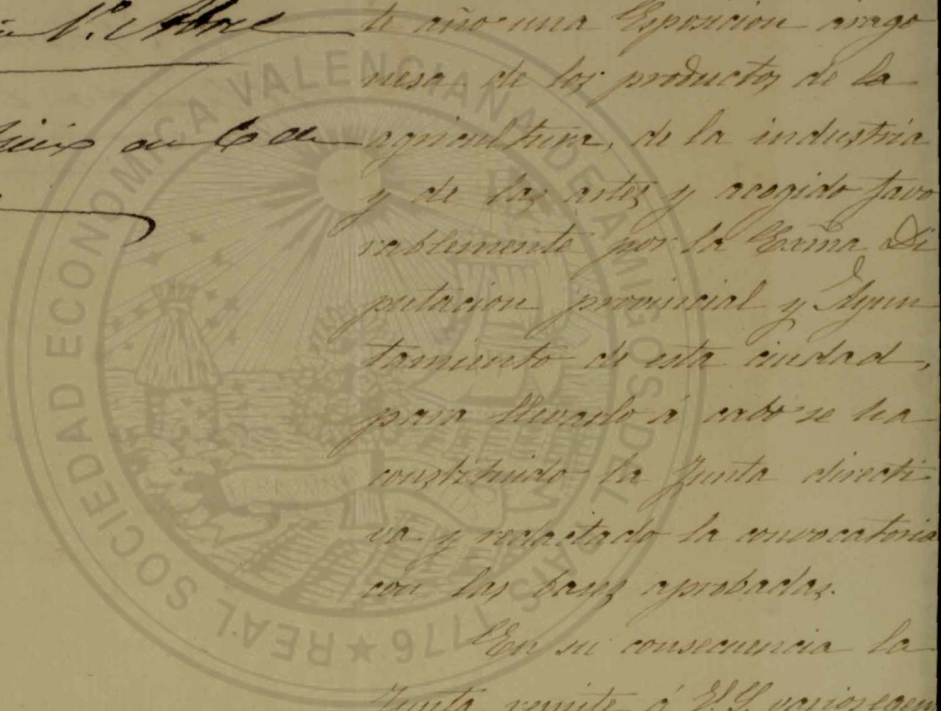 te año una Esposicion arago
nesa de los productos de la
agricultura, de la industria
y de las artes y acogido favo
rablemente por la Exma Di
putacion provincial y Ayun
tamiento de esta ciudad,
para llevarlo á cabo se ha
constituido la Junta directi
va y redactado la convocatoria
con las bases aprobadas.
En su consecuencia la
Junta remite á V.S. varios ejem
REAL SOCIEDAD ECONOMICA VALENCIANA DE AMIGOS DEL PAIS 1776